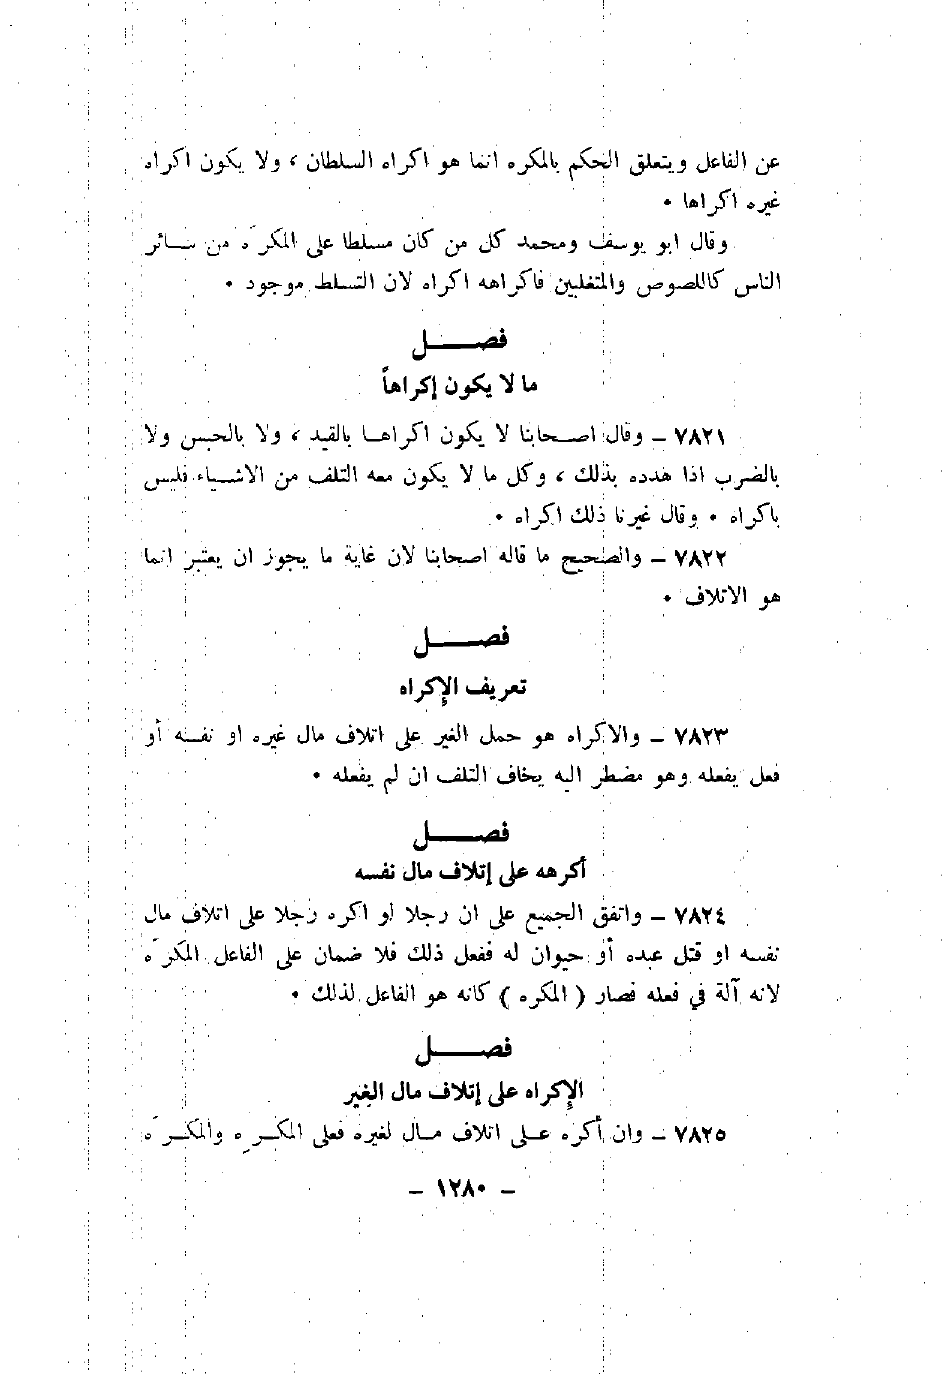 عن الفاعل ويتعلق الحكم بالمكره انما هو اكراه السلطان ، ولا يكون اكراه
غيره اكراها •
وقال ابو يوسف ومحمد كل من كان مسلطا على المكرَه من سائر
الناس كاللصوص والمتغلبين فاكراهه اكراه لان التسلط موجود •
فصل
ما لا يكون إكراهاً
٧٨٢١ – وقال اصحابنا لا يكون اكراها بالقيد ، ولا بالحبس ولا
بالضرب اذا هدده بذلك ، وكل ما لا يكون معه التلف من الاشياء فليس
باكراه • وقال غيرنا ذلك اكراه •
٧٨٢٢ – والصحيح ما قاله اصحابنا لان غاية ما يجوز ان يعتبر انما
هو الاتلاف •
فصل
تعريف الإكراه
٧٨٢٣ – والاكراه هو حمل الغير على اتلاف مال غيره او نفسه أو
فعل يفعله وهو مضطر اليه يخاف التلف ان لم يفعله •
فصل
أكرهه على إتلاف مال نفسه
٧٨٢٤ – واتفق الجميع على ان رجلا لو اكره رجلا على اتلاف مال
نفسه او قتل عبده أو حيوان له ففعل ذلك فلا ضمان على الفاعل المكرَه
لانه آلة في فعله فصار ( المكره ) كانه هو الفاعل لذلك •
فصل
الإكراه على إتلاف مال الغير
٧٨٢٥ – وان أكره على اتلاف مال لغيره فعلى المكرِه والمكرَه
– ١٢٨٠ –